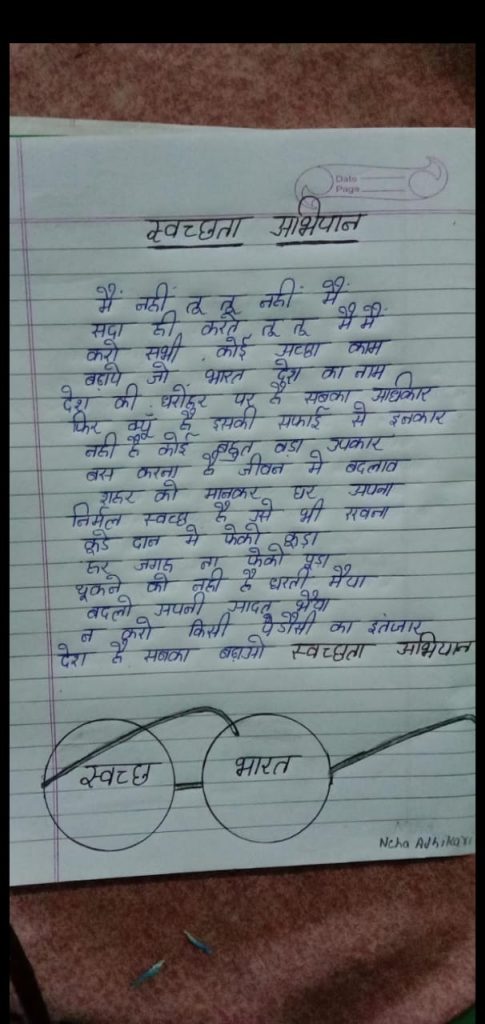 Date
Page
स्वच्छता अभियान
मैं नहीं तू तू नहीं मैं
सदा ही करते तू तू मैं मैं
करो सभी कोई अच्छा काम
बढ़ाये जो भारत देश का नाम
देश की धरोहर पर है सबका अधिकार
फिर क्यूँ है इसकी सफाई से इनकार
नही है कोई बहुत बड़ा उपकार
बस करना है जीवन मे बदलाव
शहर को मानकर घर अपना
निर्मल स्वच्छ है उसे भी रखना
कूडे दान मे फेको कूड़ा
हर जगह ना फेको पूड़ा
थूकने को नही है धरती मैया
बदलो अपनी आदत भैया
न करो किसी पडौसी का इंतजार
देश है सबका बढ़ाओ स्वच्छता अभियान
स्वच्छ भारत
Neha Adhikari